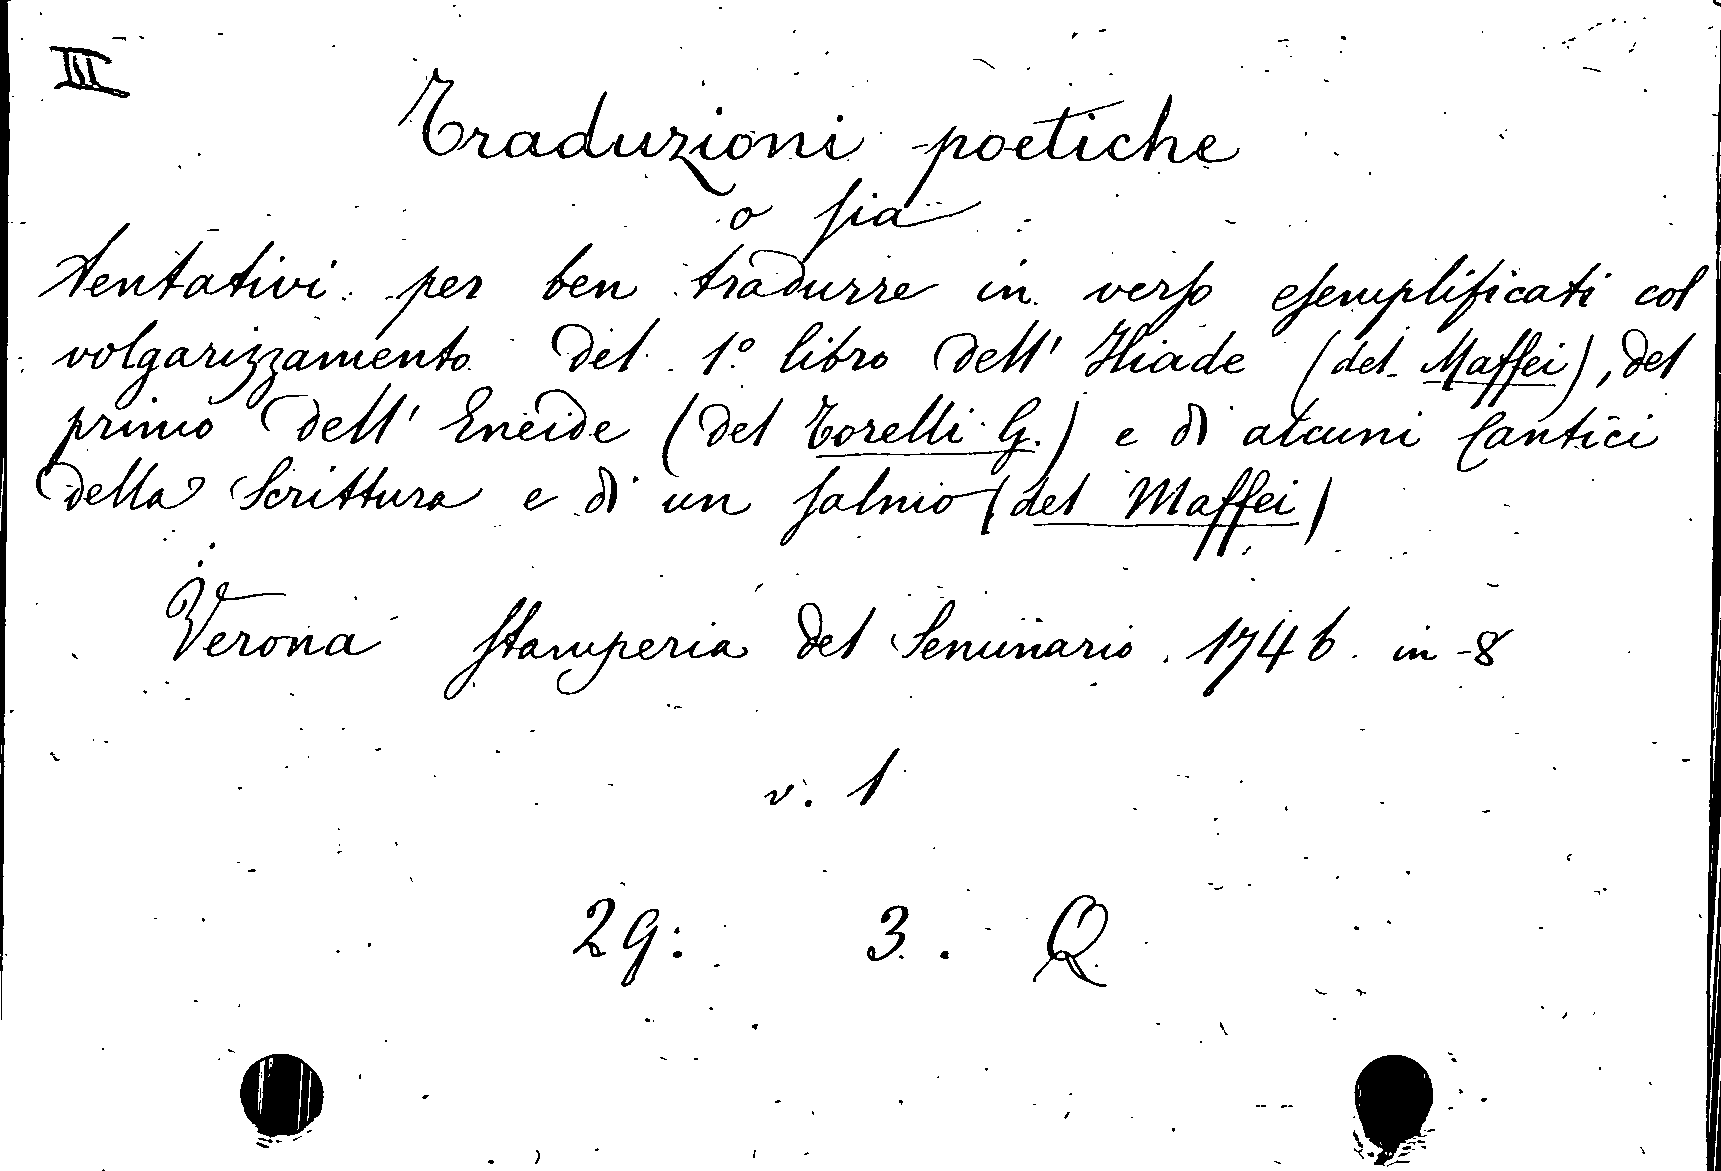 III
Traduzioni poetiche
o sia
tentativi per ben tradurre in verso esemplificati col
volgarizzamento del 1º libro dell' Iliade (del Maffei), del
primo dell' Eneide (del Torelli G.) e di alcuni Cantici
della Scrittura e di un salmo (del Maffei)
Verona Stamperia del Seminario. 1746. in-8
v. 1
29: 3. Q.